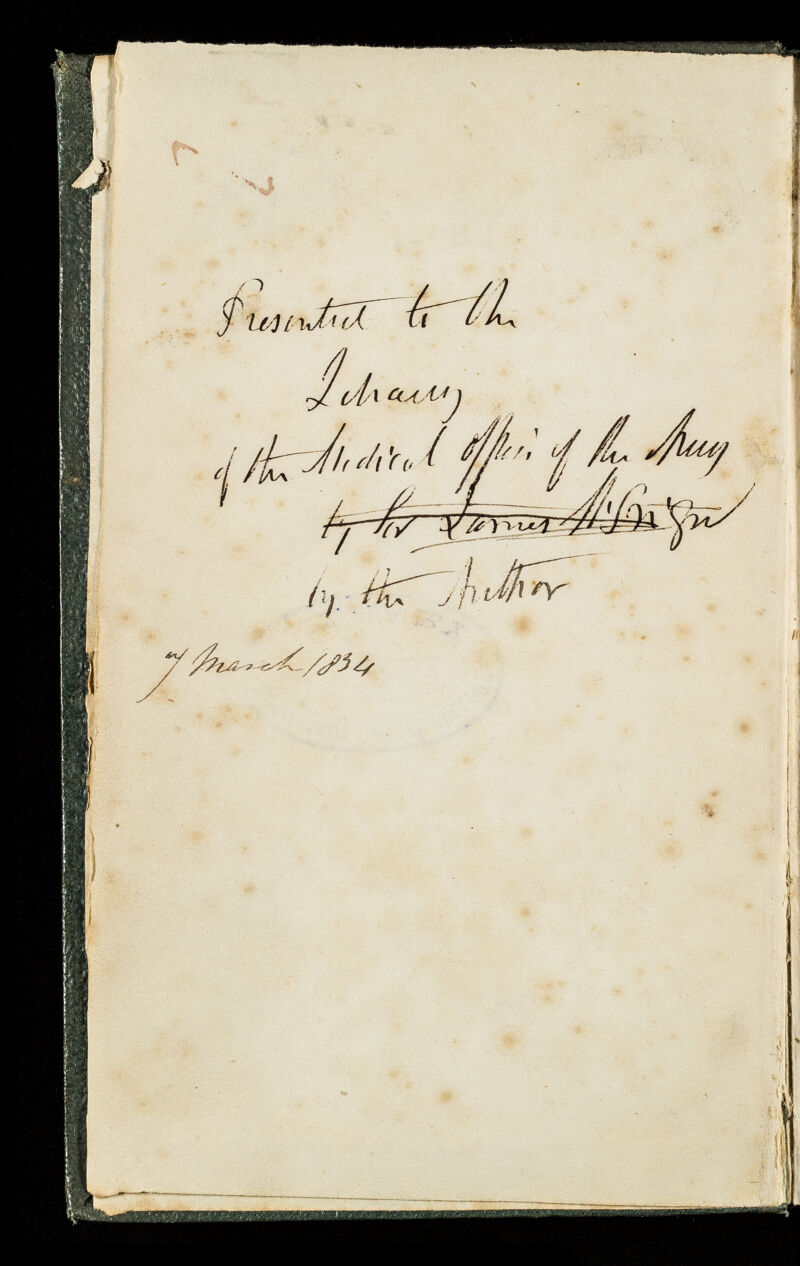 Presented to the
Library
of the Medical Officers of the Army
by Sir James McGrigor
by the Author
7 March 1834